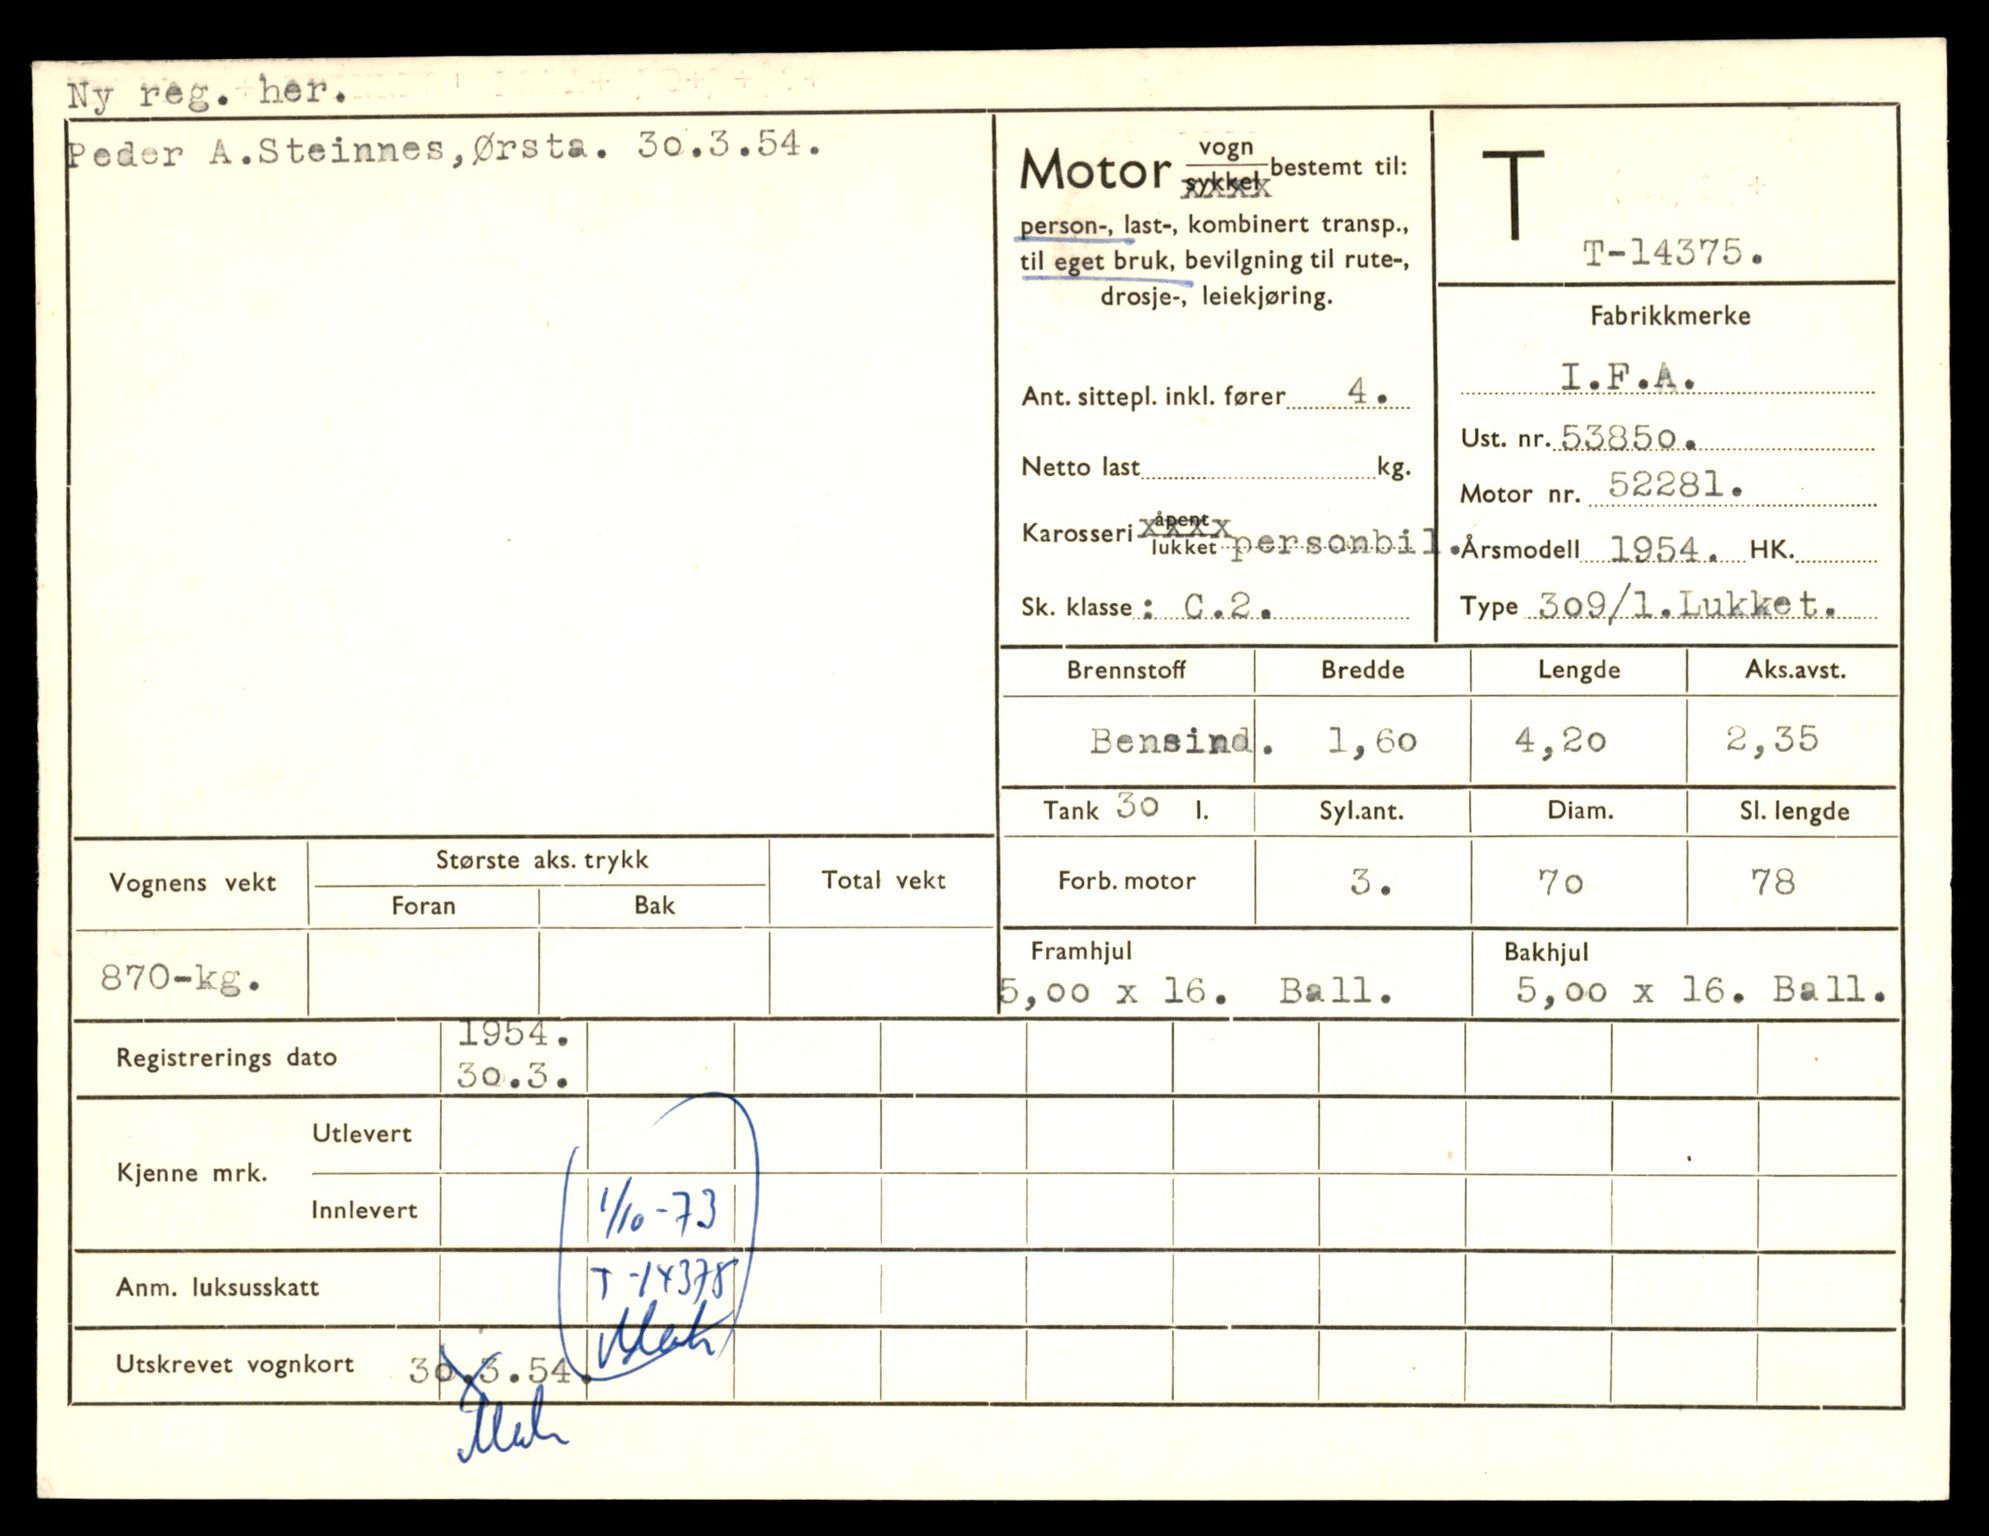 Ny reg. her.
Peder A.Steinnes,Ørsta. 30.3.54.
Motor vogn sykkel bestemt til:
person-, last-, kombinert transp.,
til eget bruk, bevilgning til rute-,
drosje-, leiekjøring.
Ant. sittepl. inkl. fører 4.
Netto last kg.
Karosseri åpent lukket personbil.
Sk. klasse : C.2.
T
T-14375.
Fabrikkmerke
I.F.A.
Ust. nr. 53850.
Motor nr. 52281.
Årsmodell 1954. HK.
Type 309/1.Lukket.
Brennstoff Bredde Lengde Aks.avst.
Bensind. 1,60 4,20 2,35
Tank 30 l. Syl.ant. Diam. Sl. lengde
Forb. motor 3. 70 78
Framhjul Bakhjul
5,00 x 16. Ball. 5,00 x 16. Ball.
Vognens vekt Største aks. trykk Total vekt
Foran Bak
870-kg.
Registrerings dato 1954.
30.3.
Kjenne mrk. Utlevert
Innlevert 1/10-73
Anm. luksusskatt T-14378
Utskrevet vognkort 30.3.54.